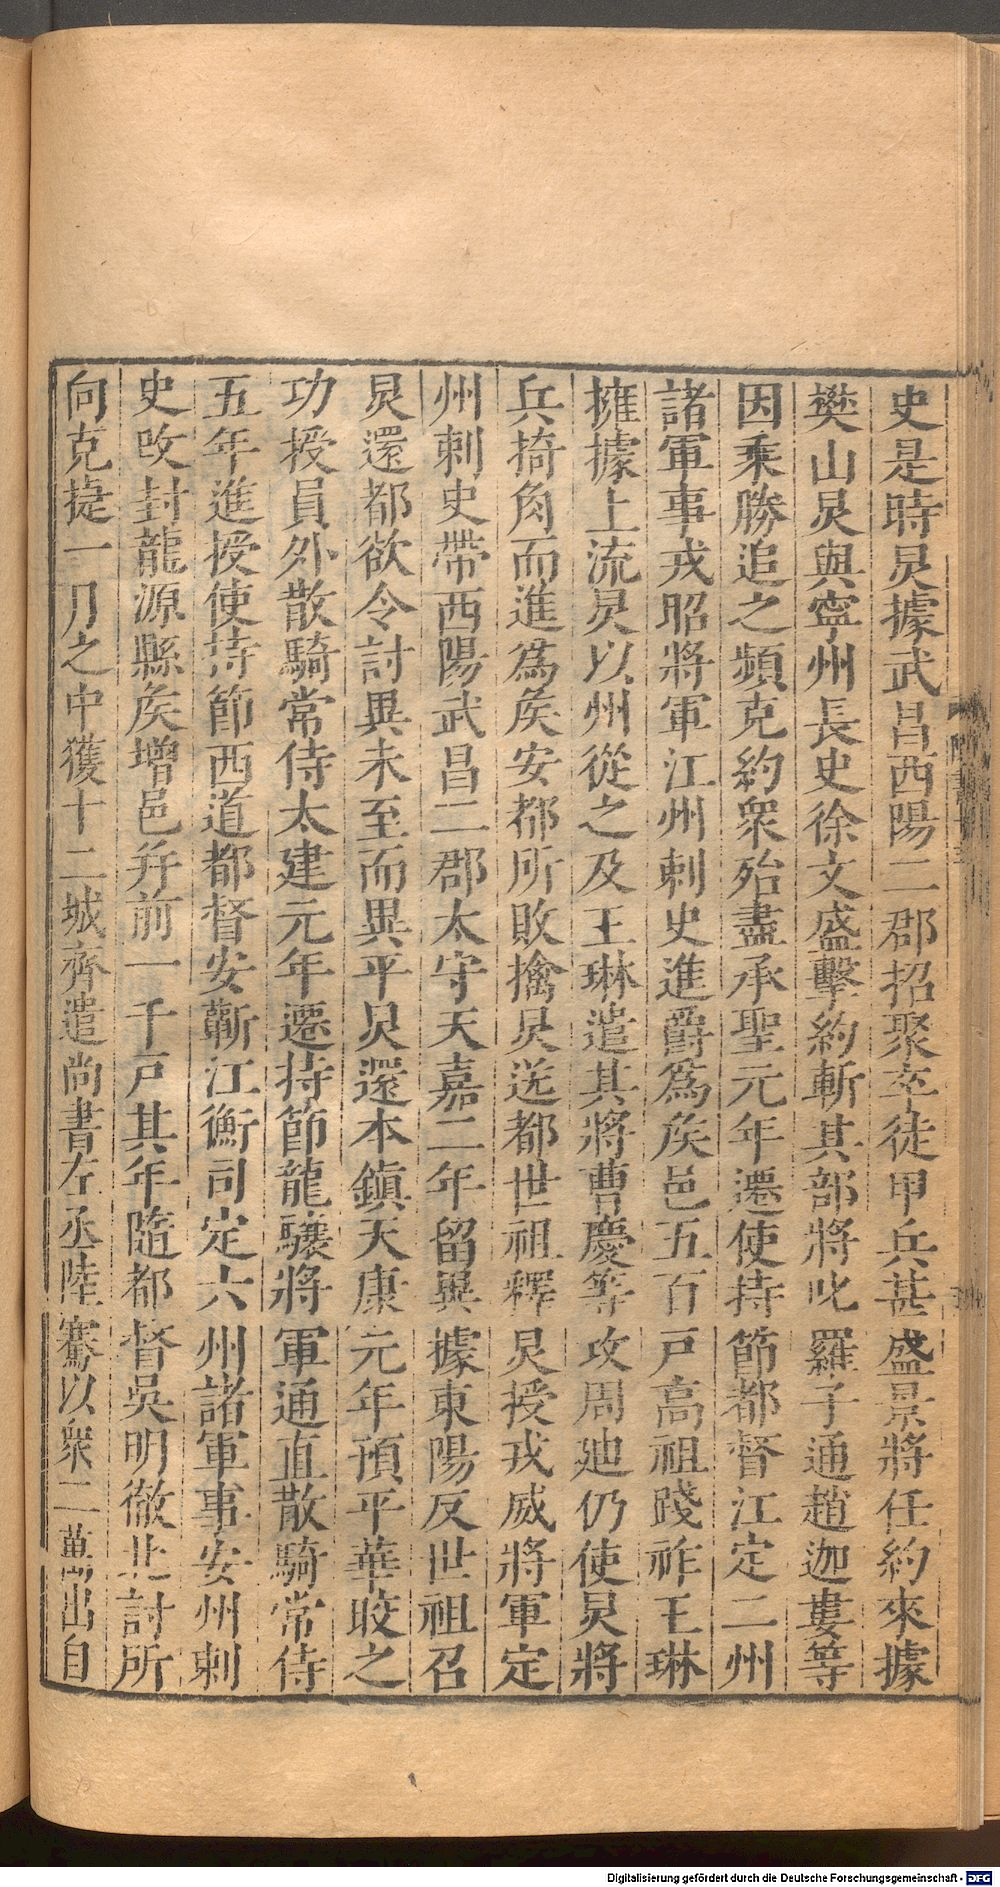 史是時炅據武昌西陽二郡招聚卒徒甲兵甚盛景將任約來據
樊山炅與寧州長史徐文盛擊約斬其部將叱羅子通趙迦婁等
因乘勝追之頻克約衆殆盡承聖元年遷使持節都督江定二州
諸軍事戎昭將軍江州刺史進爵爲矦邑五百戸高祖踐祚王琳
擁據上流炅以州從之及王琳遣其將曹慶等攻周迪仍使炅將
兵掎角而進爲矦安都所敗擒炅送都世祖釋炅授戎威將軍定
州刺史帶西陽武昌二郡太守天嘉二年留異據東陽反世祖召
炅還都欲令討異未至而異平炅還本鎮天康元年預平華皎之
功授員外散騎常侍太建元年遷持節龍驤將軍通直散騎常侍
五年進授使持節西道都督安蘄江衡司定六州諸軍事安州刺
史改封龍源縣矦增邑幷前一千戸其年隨都督吳明徹北討所
向克捷一月之中獲十二城齊遣尚書左丞陸騫以衆二萬出自
Digitalisierung gefördert durch die Deutsche Forschungsgemeinschaft - DFG